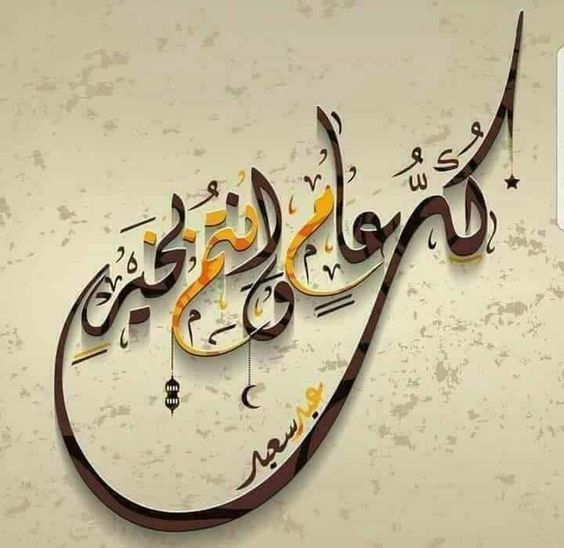 كُلُّ عامٍ وَانتُم بخَيرٍ
عيد سعيد